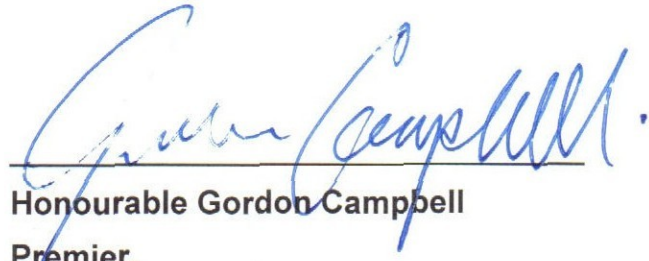 Gordon Campbell
Honourable Gordon Campbell
Premier